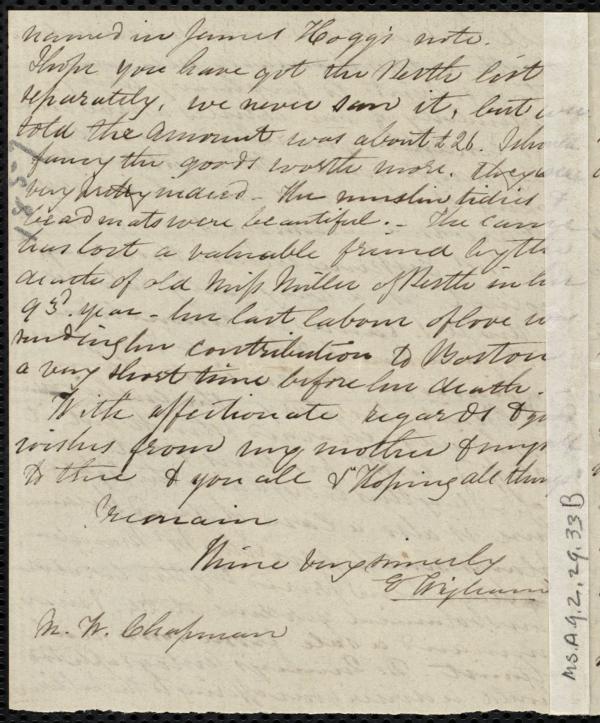 named in James Hogg's note.
I hope you have got the Perth list
separately, we never saw it, but
told the amount was about £26. I
fancy the goods worth more. they
very pretty indeed - The muslin tidies &
bead mats were beautiful. - The cause
has lost a valuable friend by the
death of old Miss Miller of Perth in her
93d. year - her last labour of love was
sending her contribution to Boston
a very short time before her death.
With affectionate regards &
wishes from my mother &
to thee & you all & "Hoping all things"
I remain
Thine very sincerely
E Wigham
M. W. Chapman
Ms.A.9.2, 29.33B